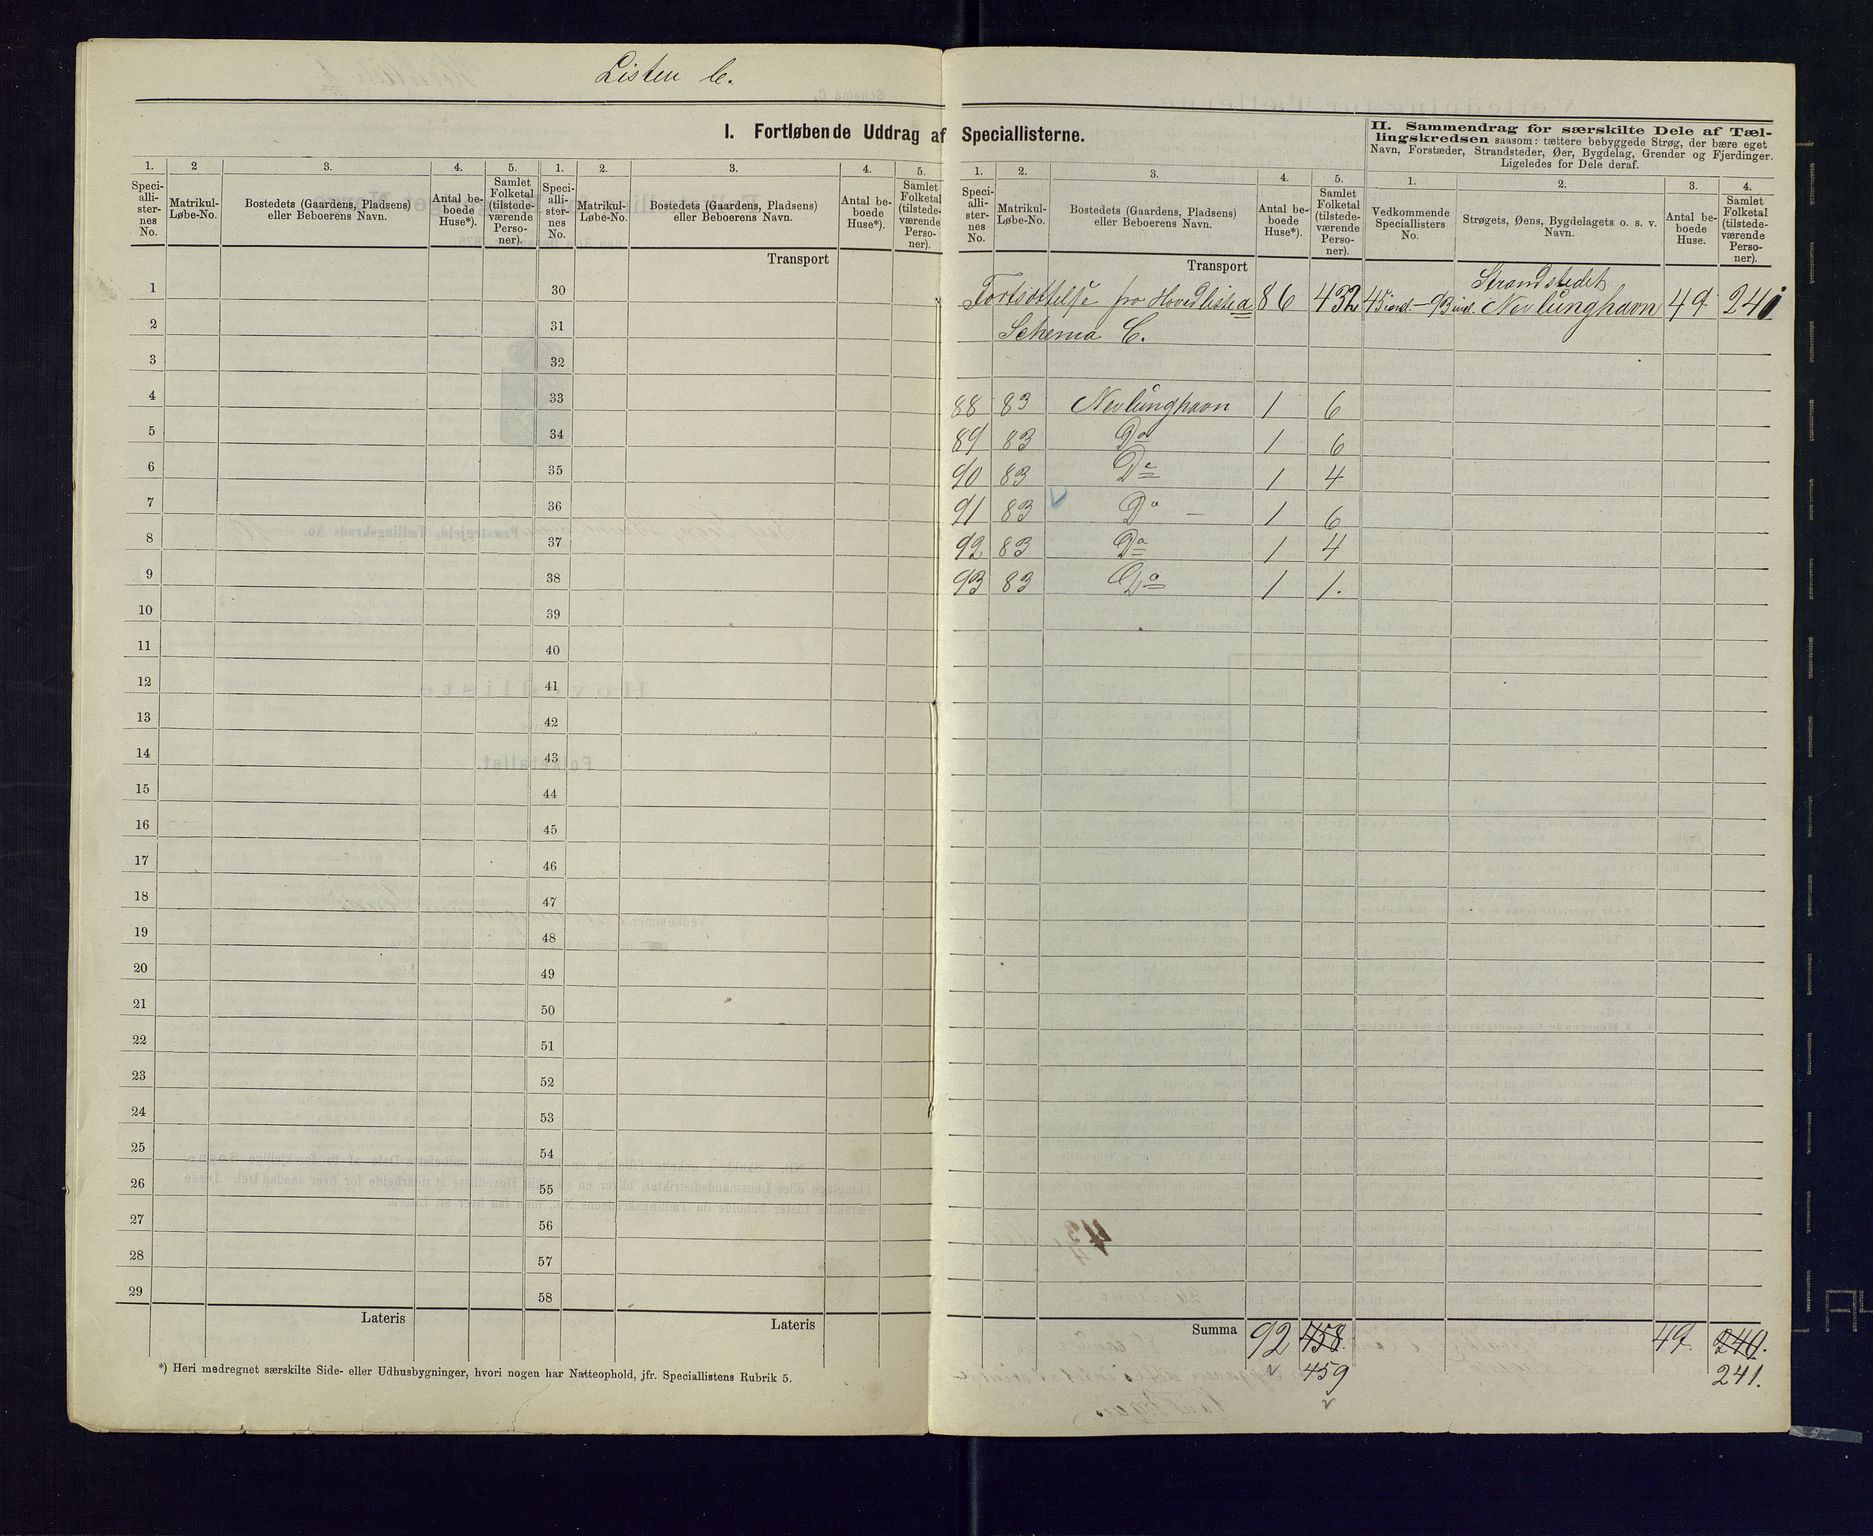 Listen C.
I. Fortløbende Uddrag af Speciallisterne.
II. Sammendrag for særskilte Dele af Tæl-
lingskredsen saasom: tættere bebyggede Strøg, der bære eget
Navn, Forstæder, Strandsteder, Øer, Bygdelag, Grender og Fjerdinger.
Ligeledes for Dele deraf.
1. 2 3. 4. 5. 1. 2. 3. 4. 5.
Speciallisternes No. Matrikul-Løbe-No. Bostedets (Gaardens, Pladsens) eller Beboerens Navn. Antal beboede Huse*). Samlet Folketal (tilstedeværende Personer). Speciallisternes No. Matrikul-Løbe-No. Bostedets (Gaardens, Pladsens) eller Beboerens Navn. Antal beboede Huse*). Samlet Folketal (tilstedeværende Personer).
Transport
1 30
2 31
3 32
4 33
5 34
6 35
7 36
8 37
9 38
10 39
11 40
12 41
13 42
14 43
15 44
16 45
17 46
18 47
19 48
20 49
21 50
22 51
23 52
24 53
25 54
26 55
27 56
28 57
29 58
Lateris Lateris
*) Heri medregnet særskilte Side- eller Udhusbygninger, hvori nogen har Natteophold, jfr. Speciallistens Rubrik 5.
1. 2. 3. 4. 5. 1. 2. 3. 4.
Speciallisternes No. Matrikul-Løbe-No. Bostedets (Gaardens, Pladsens) eller Beboerens Navn. Antal beboede Huse*). Samlet Folketal (tilstedeværende Personer). Vedkommende Speciallisters No. Strøgets, Øens, Bygdelagets o. s. v. Navn. Antal beboede Huse. Samlet Folketal (tilstedeværende Personer).
Transport
Strandstedet
Fortsættelse fra Hovedlisten 86 432 45 incl. - 93 incl. Nevlunghavn 49 241
Schema C.
88 83 Nevlunghavn 1 6
89 83 Do 1 6
90 83 Do 1 4
91 83 Do - 1 6
92 83 Do 1 4
93 83 Do 1 1.
Summa 92 458. 49. 240.
459 241.